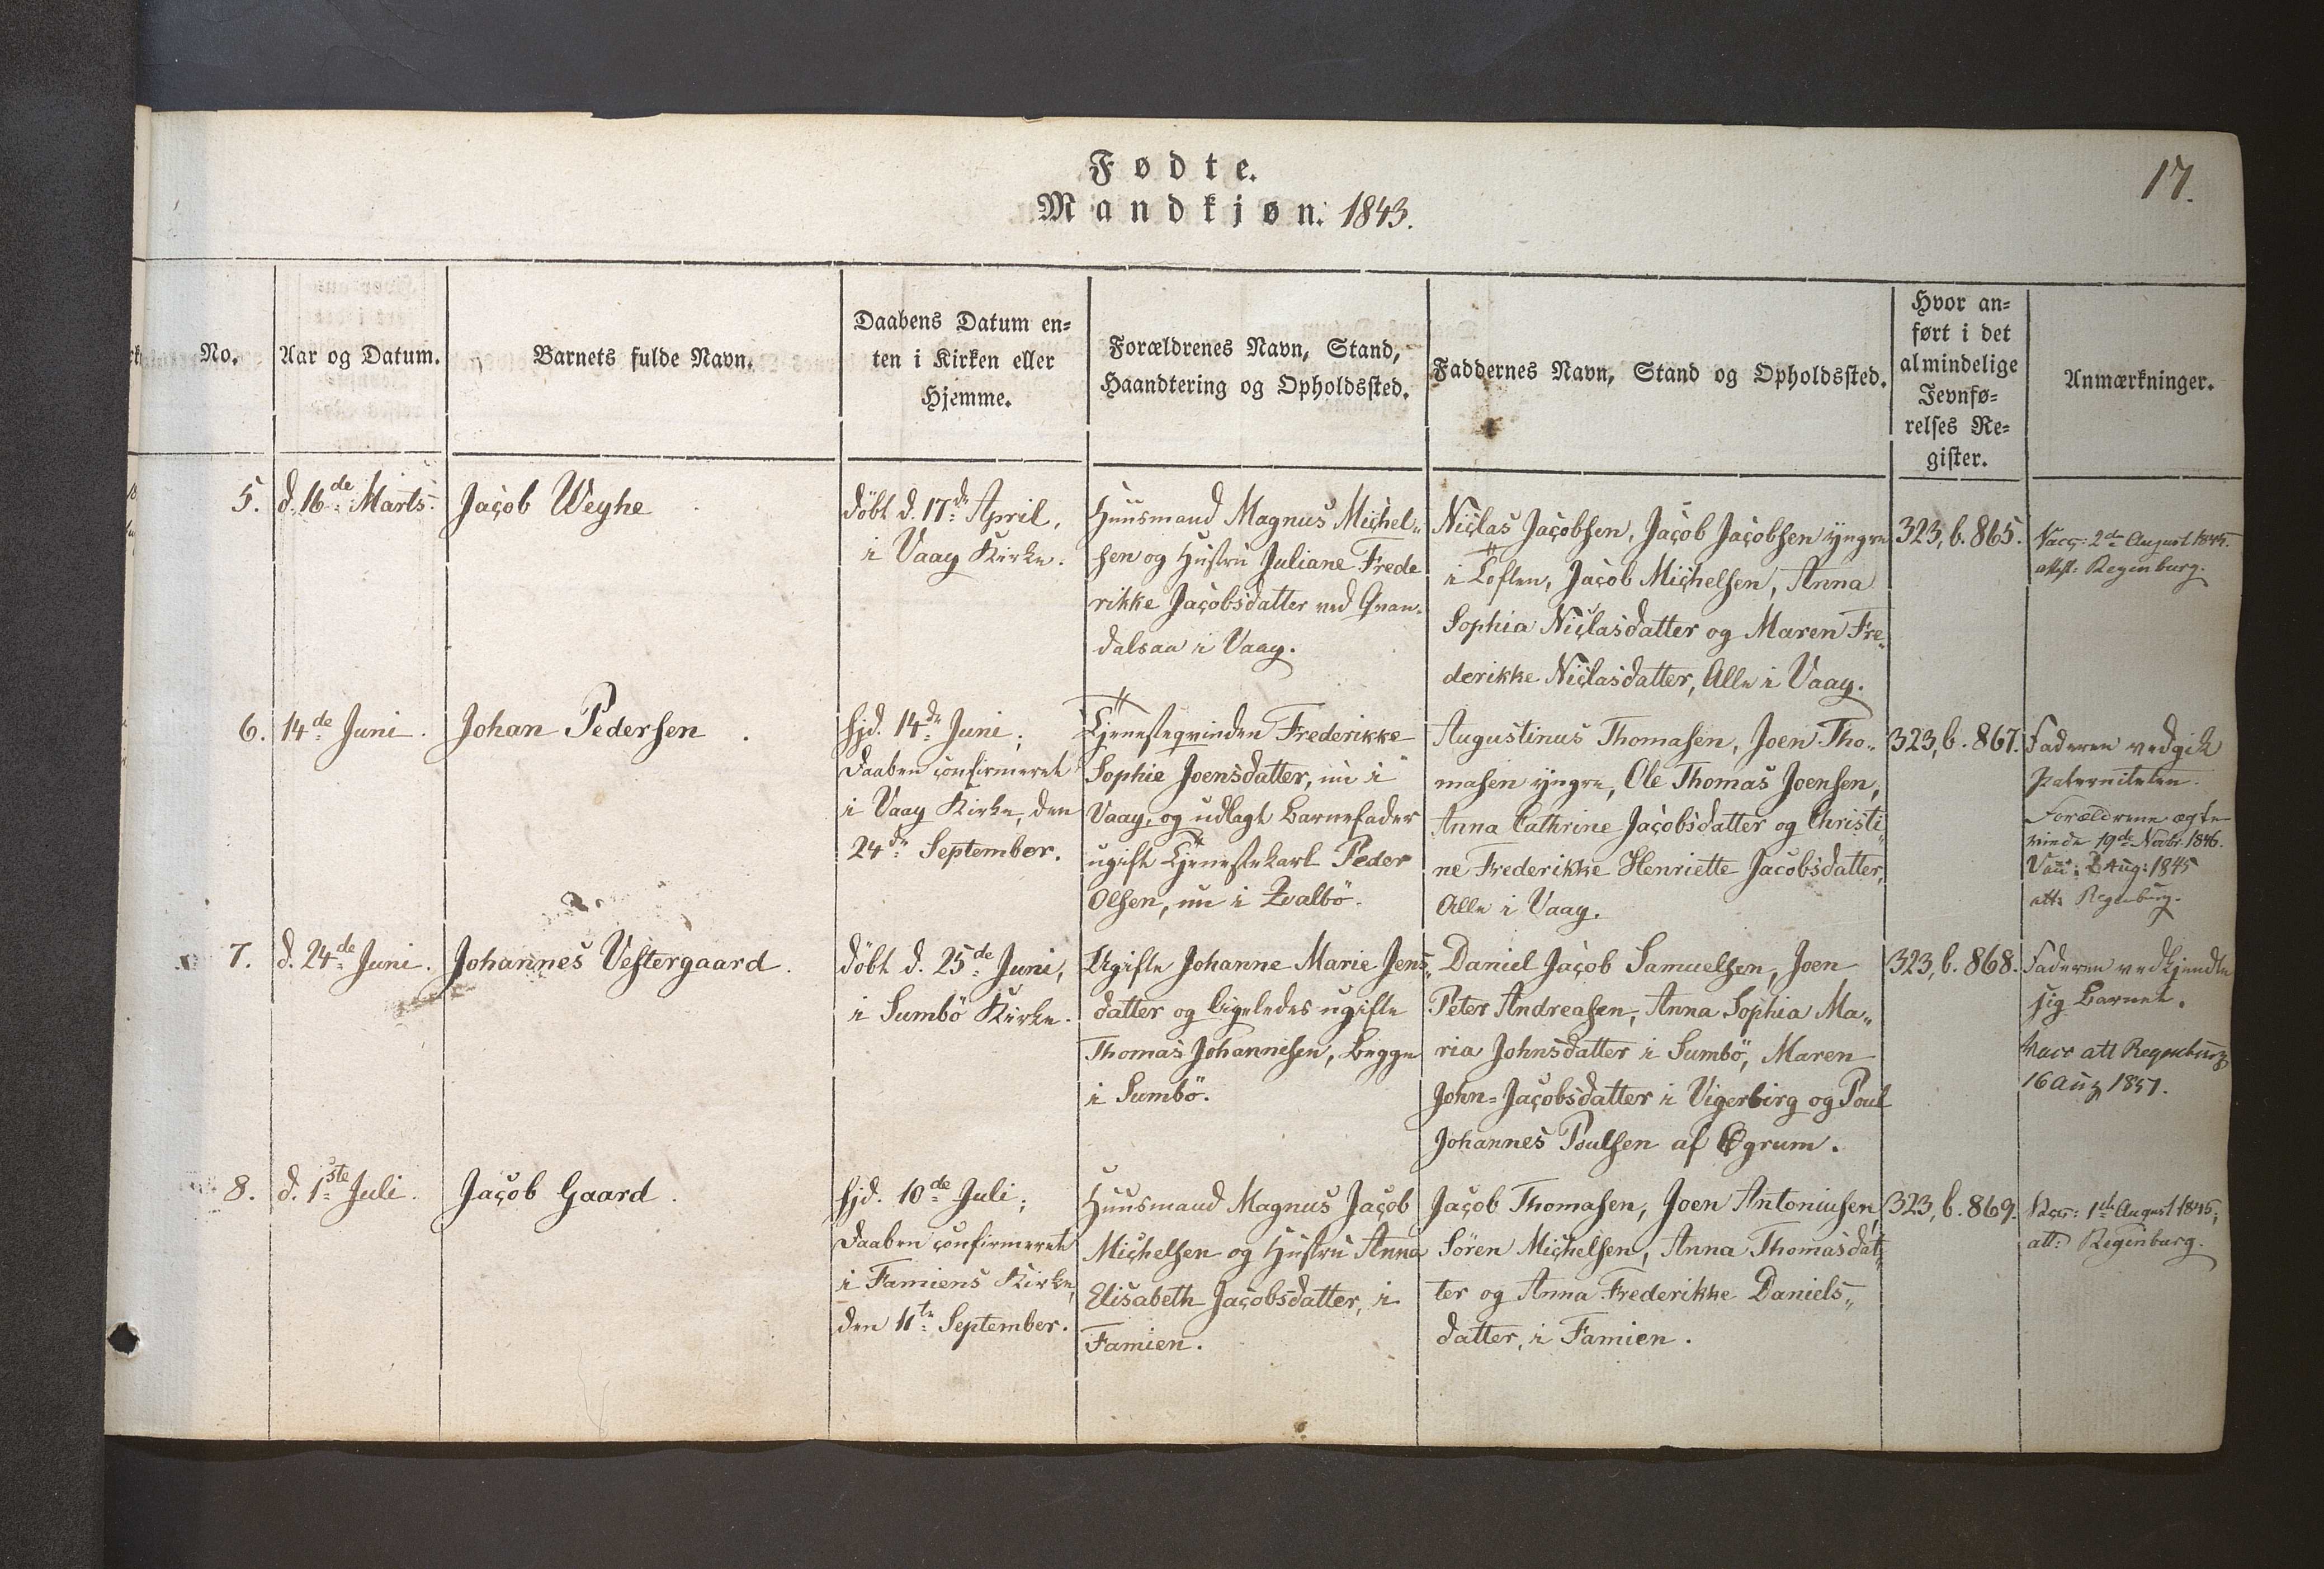 Fødte.
Mandkjøn. 1843.
17.
No.
Aar og Datum.
Barnets fulde Navn.
Daabens Datum en=
ten i Kirken eller
Hjemme.
Forældrenes Navn, Stand,
Haandtering og Opholdssted.
Faddernes Navn, Stand og Opholdssted.
Hvor an=
ført i det
almindelige
Jevnfø=
relses Re=
gister.
Anmærkninger.
5.
d. 16de Marts.
Jacob Weyhe
döbt d. 17de April,
i Vaag Kirke.
Huusmand Magnus Michel„
sen og Hustru Juliane Frede
rikke Jacobsdatter ved Qvan„
dalsaa i Vaag.
Niclas Jacobsen, Jacob Jacobsen yngre
i Toften, Jacob Michelsen, Anna
Sophia Niclasdatter og Maren Fre„
derikke Niclasdatter, Alle i Vaag.
323, b. 865.
Vacc: 2de August 1845.
attest: Regenburg.
6.
14de Juni.
Johan Pedersen
hjd. 14de Juni;
Daaben confirmeret
i Vaag Kirke, den
24de September.
Tjenesteqvinden Frederikke
Sophie Joensdatter, nu i
Vaag, og udlagt Barnefader
ugift Tjenestekarl Peder
Olsen, nu i Qvalbö.
Augustinus Thomasen, Joen Tho„
masen yngre, Ole Thomas Joensen,
Anna Cathrine Jacobsdatter og Christi„
ne Frederikke Henriette Jacobsdatter,
Alle i Vaag.
323, b. 867.
Faderen vedgik
Paterniteten.
Forældrene ægte
viede 19de Novbr. 1846.
Vacc: 2 Aug: 1845
att: Regenburg.
7.
d. 24de Juni.
Johannes Vestergaard.
döbt d. 25de Juni,
i Sumbö Kirke.
Ugifte Johanne Marie Jens„
datter og ligeledes ugifte
Thomas Johannesen, begge
i Sumbö.
Daniel Jacob Samuelsen, Joen
Peter Andreasen, Anna Sophia Ma„
ria Johnsdatter i Sumbö, Maren
John=Jacobsdatter i Vigerbirg og Poul
Johannes Poulsen af Øgrum.
323, b. 868.
Faderen vedkjendte
sig Barnet.
Vacc att Regenburg
16 Aug 1851.
8.
d. 1ste Juli.
Jacob Gaard.
hjd. 10de Juli;
Daaben confirmeret
i Famiens Kirke,
den 11te September.
Huusmand Magnus Jacob
Michelsen og Hustru Anna
Elisabeth Jacobsdatter, i
Famien.
Jacob Thomasen, Joen Antoniusen,
Sören Michelsen, Anna Thomasdat„
ter og Anna Frederikke Daniels„
datter, i Famien.
323, b. 869.
Vacc: 1ste August 1845;
att: Regenburg.